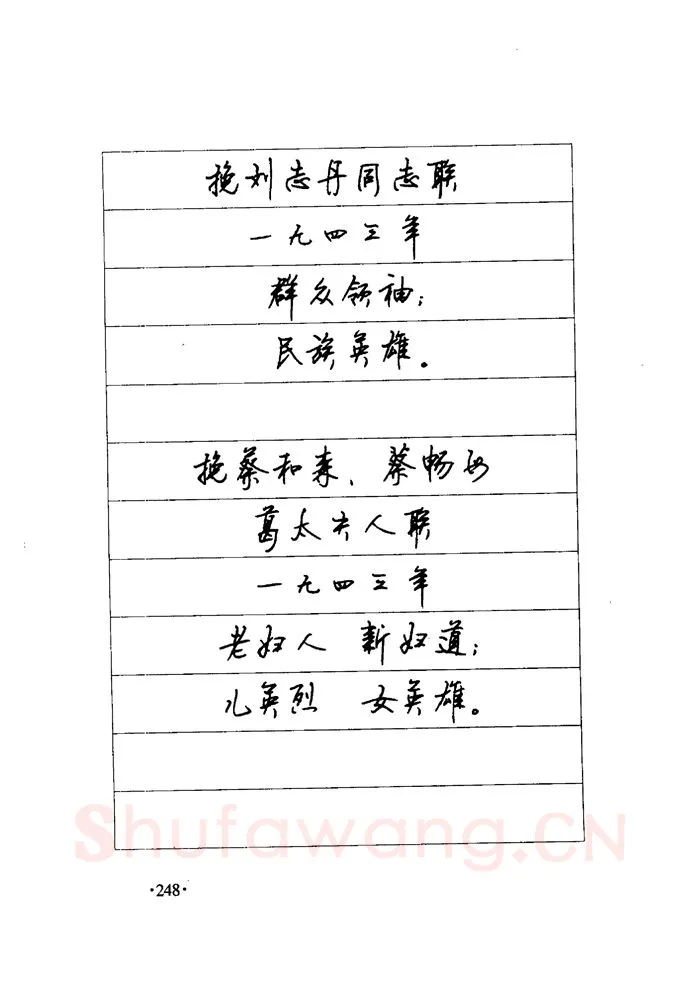 挽刘志丹同志联
一九四三年
群众领袖；
民族英雄。
挽蔡和森、蔡畅母
葛太夫人联
一九四三年
老妇人 新妇道；
儿英烈 女英雄。
Shufawang.CN
·248·